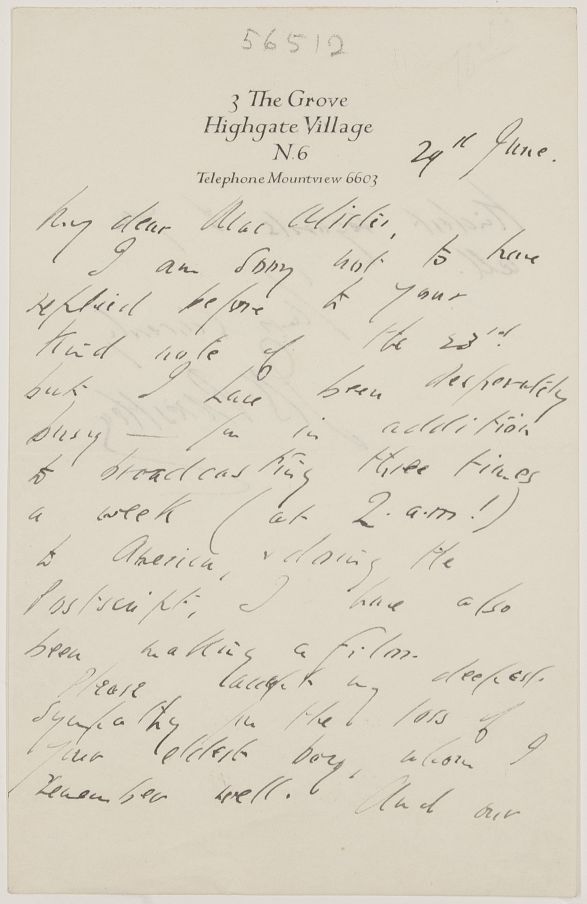 56512
3 The Grove
Highgate Village
N.6
Telephone Mountview 6603
29th June.
My dear Mac Alister,
I am sorry not to have
replied before to your
kind note of the 23rd.
but I have been desperately
busy — for in addition
to broadcasting three times
a week (at 2.a.m!)
to America, & doing the
Postscript, I have also
been making a film.
Please accept my deepest
sympathy in the loss of
your eldest boy, whom I
remember well. And our